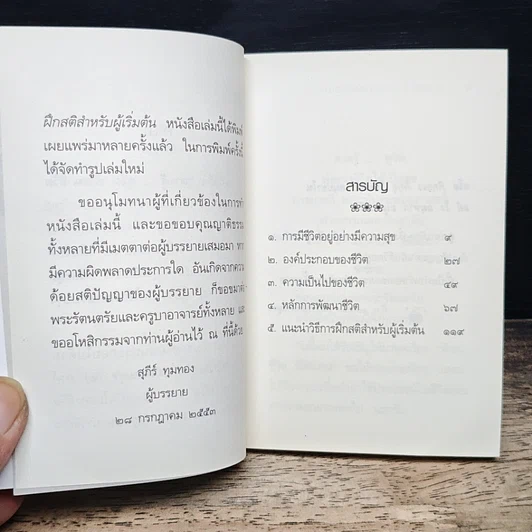 ฝึกสติสำหรับผู้เริ่มต้น หนังสือเล่มนี้ได้พิมพ์
เผยแพร่มาหลายครั้งแล้ว ในการพิมพ์ครั้งนี้
ได้จัดทำรูปเล่มใหม่
ขออนุโมทนาผู้ที่เกี่ยวข้องในการทำ
หนังสือเล่มนี้ และขอขอบคุณญาติธรรม
ทั้งหลายที่มีเมตตาต่อผู้บรรยายเสมอมา
มีความผิดพลาดประการใด อันเกิดจากความ
ด้อยสติปัญญาของผู้บรรยาย ก็ขอขมา
พระรัตนตรัยและครูบาอาจารย์ทั้งหลาย และ
ขออโหสิกรรมจากท่านผู้อ่านไว้ ณ ที่นี้ด้วย
สุภีร์ ทุมทอง
ผู้บรรยาย
๒๘ กรกฎาคม ๒๕๕๓
สารบัญ
๑. การมีชีวิตอยู่อย่างมีความสุข ๙
๒. องค์ประกอบของชีวิต ๒๗
๓. ความเป็นไปของชีวิต ๔๙
๔. หลักการพัฒนาชีวิต ๖๗
๕. แนะนำวิธีการฝึกสติสำหรับผู้เริ่มต้น ๑๑๙